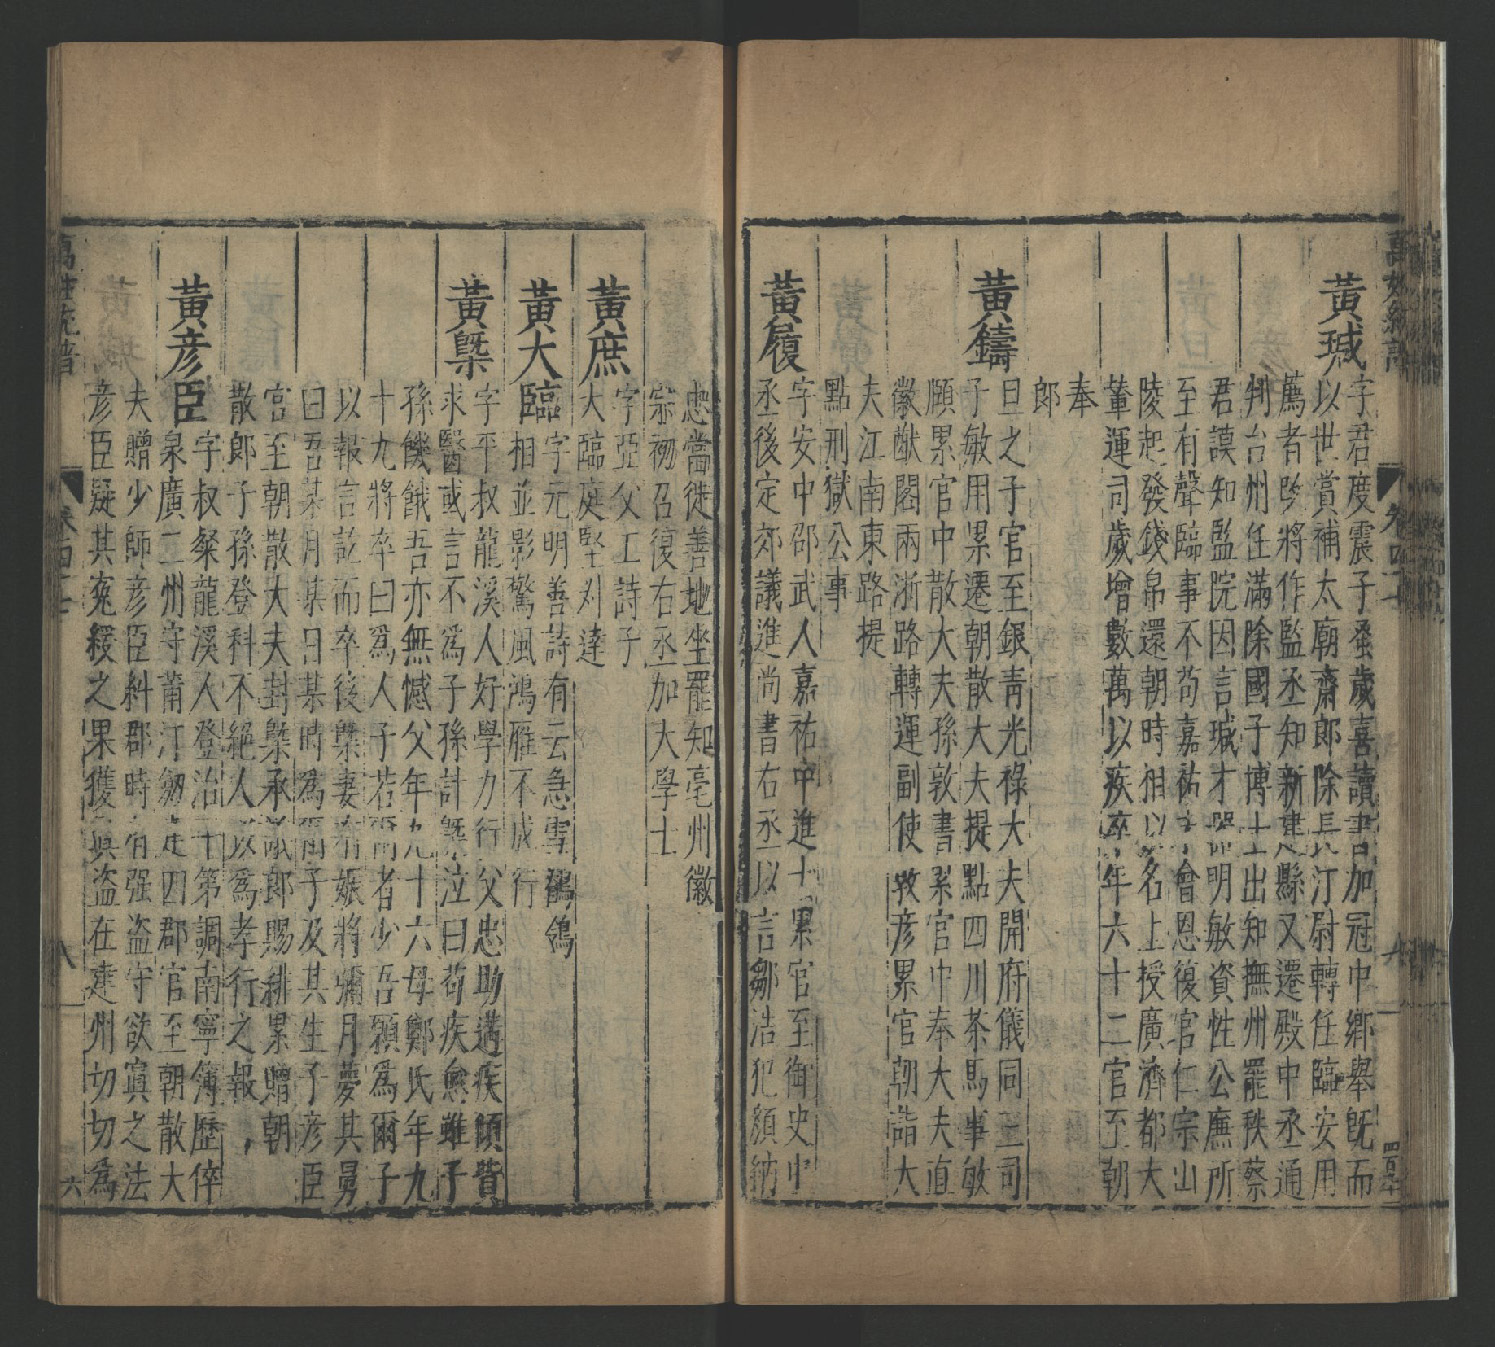 黃珹
字君度震子蚤歲喜讀書加冠中鄉舉旣而
以世賞補太廟齋郎除長汀尉轉任臨安用
薦者昣將作監丞知新建縣又遷殿中丞通
判台州任滿除國子博士出知撫州罷秩蔡
君謨知監院因言珹才器明敏資性公廉所
至有聲臨事不苟嘉祐會恩復官仁宗山
陵起發錢帛還朝時相以名上授廣濟都大
輦運司歲增數萬以疾卒年六十二官至朝
奉
郎
黃鑄
旦之子官至銀青光祿大夫開府儀同三司
子敏用累遷朝散大夫提點四川茶馬事敏
願累官中散大夫孫敦書累官中奉大夫直
徽猷閣兩浙路轉運副使敦彥累官朝請大
夫江南東路提
點刑獄公事
黃履
字安中邵武人嘉祐中進士累官至御史中
丞後定郊議進尚書右丞以言鄒浩犯顏納
忠當徙善地坐罷知亳州徽
宗初召復右丞加大學士
黃庶
字亞父工詩子
大臨庭堅刈達
黃大臨
字元明善詩有云急雪鶺鴒
相並影驚風鴻雁不成行
黃槩
字平叔龍溪人好學力行父忠助遘疾傾貲
求醫或言不爲子孫計槩泣曰苟疾愈雖子
孫饑餓吾亦無憾父年九十六母鄭氏年九
十九將卒曰爲人子若爾者少吾願爲爾子
以報言訖而卒後槩妻有娠將彌月夢其舅
曰吾某月某日某時爲爾子及其生子彥臣
宮至朝散大夫封槩承議郎賜緋累贈朝
散郎子孫登科不絕人以爲孝行之報
黃彥臣
字叔粲龍溪人登治平第調南寧簿歷倅
泉廣二州守莆汀劒建四郡官至朝散大
夫贈少師彥臣斜郡時有强盜守欲寘之法
彥臣疑其寃緩之果獲眞盜在建州切切爲